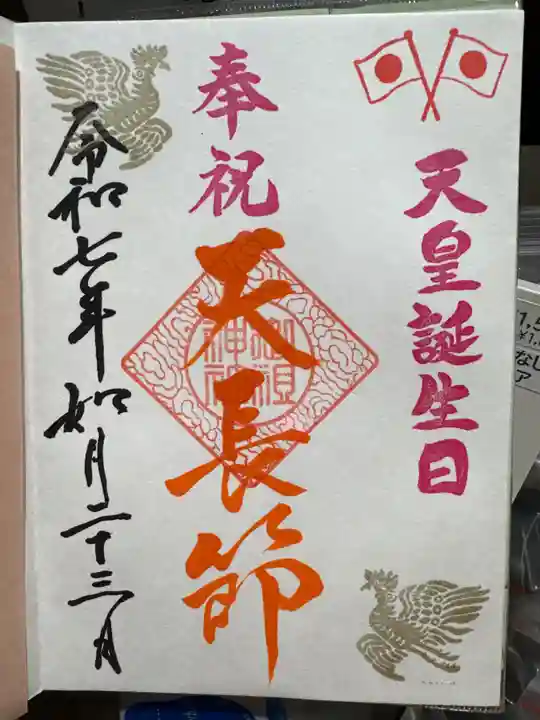 天皇誕生日
奉祝
天長節
令和七年如月二十三日